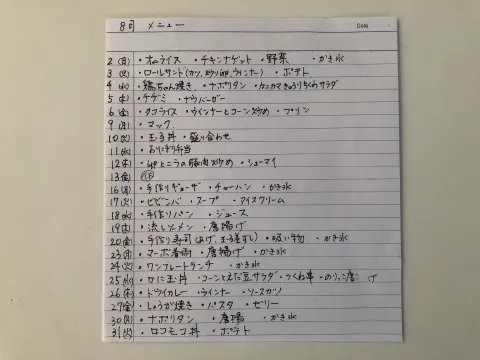 8月 メニュー
Date
2 (月) ・オムライス ・チキンナゲット ・野菜 ・かき氷
3 (火) ・ロールサンド(カツ, ウインナー) ・ポテト
4 (水) ・鶏ちゃん焼き ・ナポリタン ・カニカマきゅうりちくわサラダ
5 (木) ・ケヂミ
6 (金) ・タコライス ・ウインナーとコーン炒め ・プリン
9 (月) ・マック
10 (火) ・玉子丼 ・盛り合わせ
11 (水) ・おにぎり弁当
12 (木) ・卵とこうの豚肉炒め ・シューマイ
13 (金)
16 (月) ・手作りギョーザ ・チャーハン ・かき氷
17 (火) ・ビビンバ ・スープ ・アイスクリーム
18 (水) ・手作りパン ・ジュース
19 (木) ・流しソーメン ・唐揚げ
20 (金) ・手作り寿司 ・吸い物 ・かき氷
23 (月) ・マーボ春雨 ・唐揚げ ・かき氷
24 (火) ・ワンプレートランチ ・かき氷
25 (水) ・かに玉丼 ・コーンえだ豆サラダ ・つくね串
26 (木) ・ドライカレー ・ウインナー ・ソースカツ
27 (金) ・しょうが焼き ・パスタ ・ゼリー
30 (月) ・ナポリタン ・唐揚 ・かき氷
31 (火) ・ロコモコ丼 ・ポテト